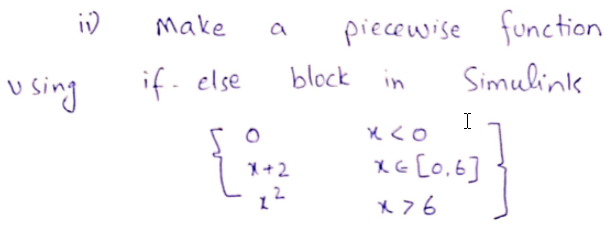 ii) Make a piecewise function
using if-else block in Simulink
0 x < 0
x+2 x ∈ [0,6]
x² x > 6